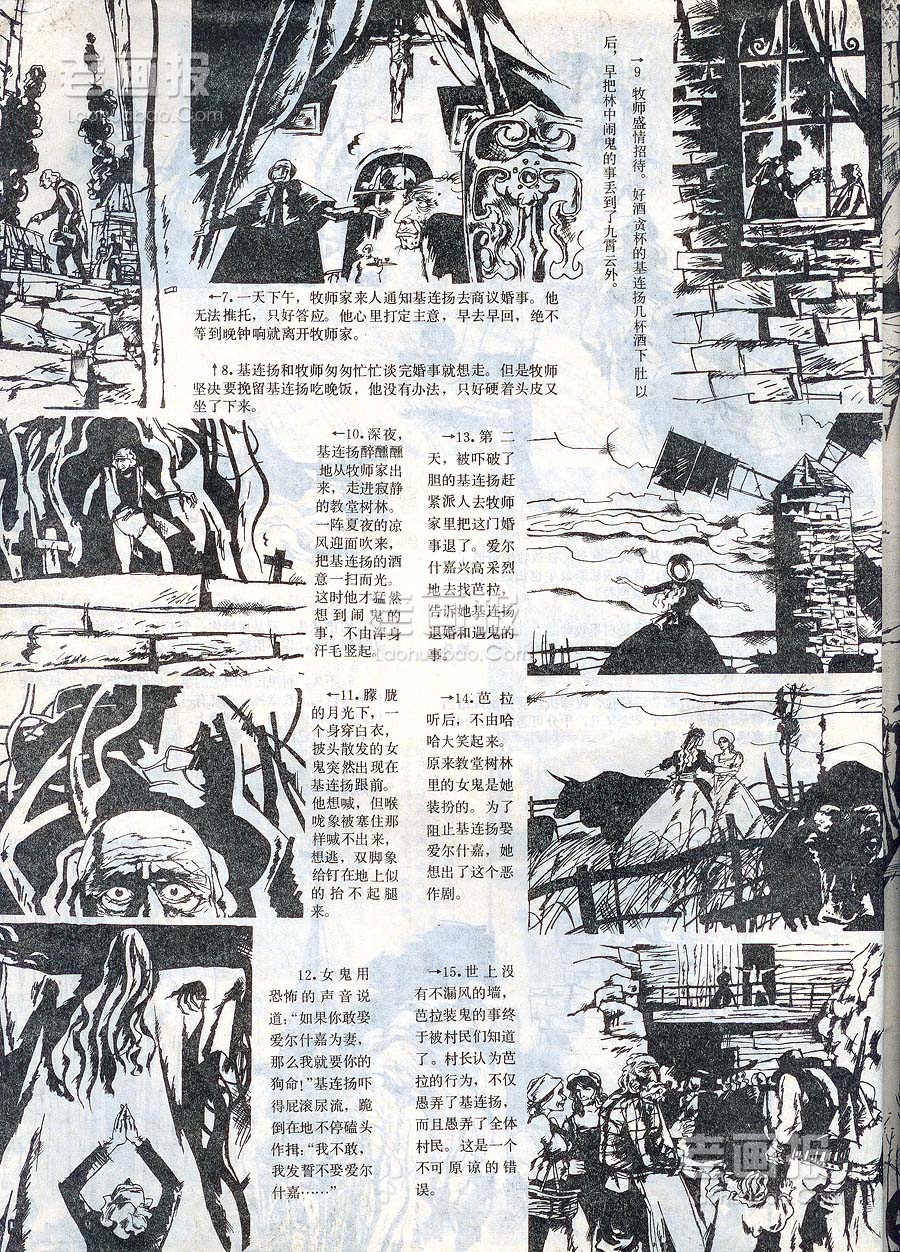 ←7.一天下午，牧师家来人通知基连扬去商议婚事。他
无法推托，只好答应。他心里打定主意，早去早回，绝不
等到晚钟响就离开牧师家。
↑8.基连扬和牧师匆匆忙忙谈完婚事就想走。但是牧师
坚决要挽留基连扬吃晚饭，他没有办法，只好硬着头皮又
坐了下来。
→9 牧师盛情招待。好酒贪杯的基连扬几杯酒下肚以
后，早把林中闹鬼的事丢到了九霄云外。
←10.深夜，
基连扬醉醺醺
地从牧师家出
来，走进寂静
的教堂树林。
一阵夏夜的凉
风迎面吹来，
把基连扬的酒
意一扫而光。
这时他才猛然
想到闹鬼的
事，不由浑身
汗毛竖起。
←11.朦胧
的月光下，一
个身穿白衣，
披头散发的女
鬼突然出现在
基连扬跟前。
他想喊，但喉
咙象被塞住那
样喊不出来，
想逃，双脚象
给钉在地上似
的抬不起腿
来。
12.女鬼用
恐怖的声音说
道：“如果你敢娶
爱尔什嘉为妻，
那么我就要你的
狗命！”基连扬吓
得屁滚尿流，跪
倒在地不停磕头
作揖：“我不敢，
我发誓不娶爱尔
什嘉……”
→13.第二
天，被吓破了
胆的基连扬赶
紧派人去牧师
家里把这门婚
事退了。爱尔
什嘉兴高采烈
地去找芭拉，
告诉她基连扬
退婚和遇鬼的
事。
→14.芭拉
听后，不由哈
哈大笑起来。
原来教堂树林
里的女鬼是她
装扮的。为了
阻止基连扬娶
爱尔什嘉，她
想出了这个恶
作剧。
→15.世上没
有不漏风的墙，
芭拉装鬼的事终
于被村民们知道
了。村长认为芭
拉的行为，不仅
愚弄了基连扬，
而且愚弄了全体
村民。这是一个
不可原谅的错
误。
老画报
Laohuabao.Com
老画报
Laohuabao.Com
老画报